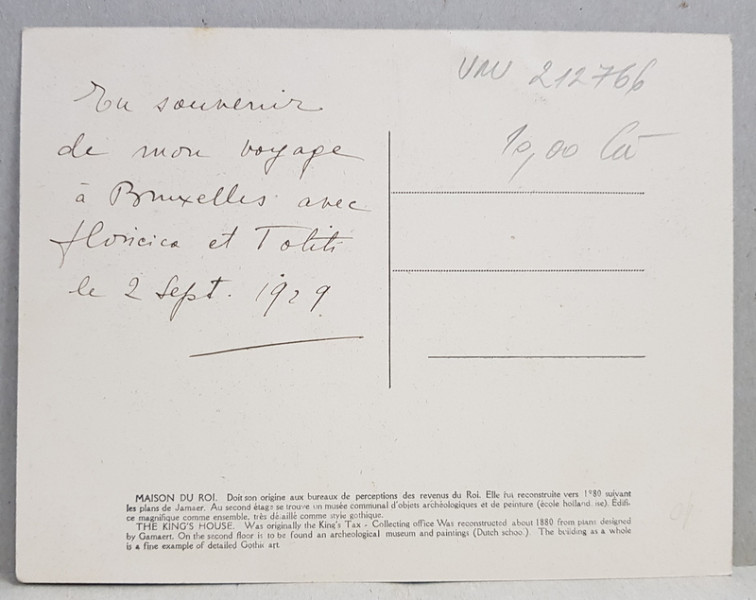 En souvenir
de mon voyage
à Bruxelles avec
floricica et Toliti
le 2 Sept. 1929
212766
10,00
MAISON DU ROI. Doit son origine aux bureaux de perceptions des revenus du Roi. Elle fut reconstruite vers 1880 suivant
les plans de Jamaer. Au second étage se trouve un musée communal d'objets archéologiques et de peinture (école hollandaise). Édifi-
ce magnifique comme ensemble, très détaillé comme style gothique.
THE KING'S HOUSE. Was originally the King's Tax - Collecting office Was reconstructed about 1880 from plans designed
by Gamaert. On the second floor is to be found an archeological museum and paintings (Dutch school). The building as a whole
is a fine example of detailed Gothic art.